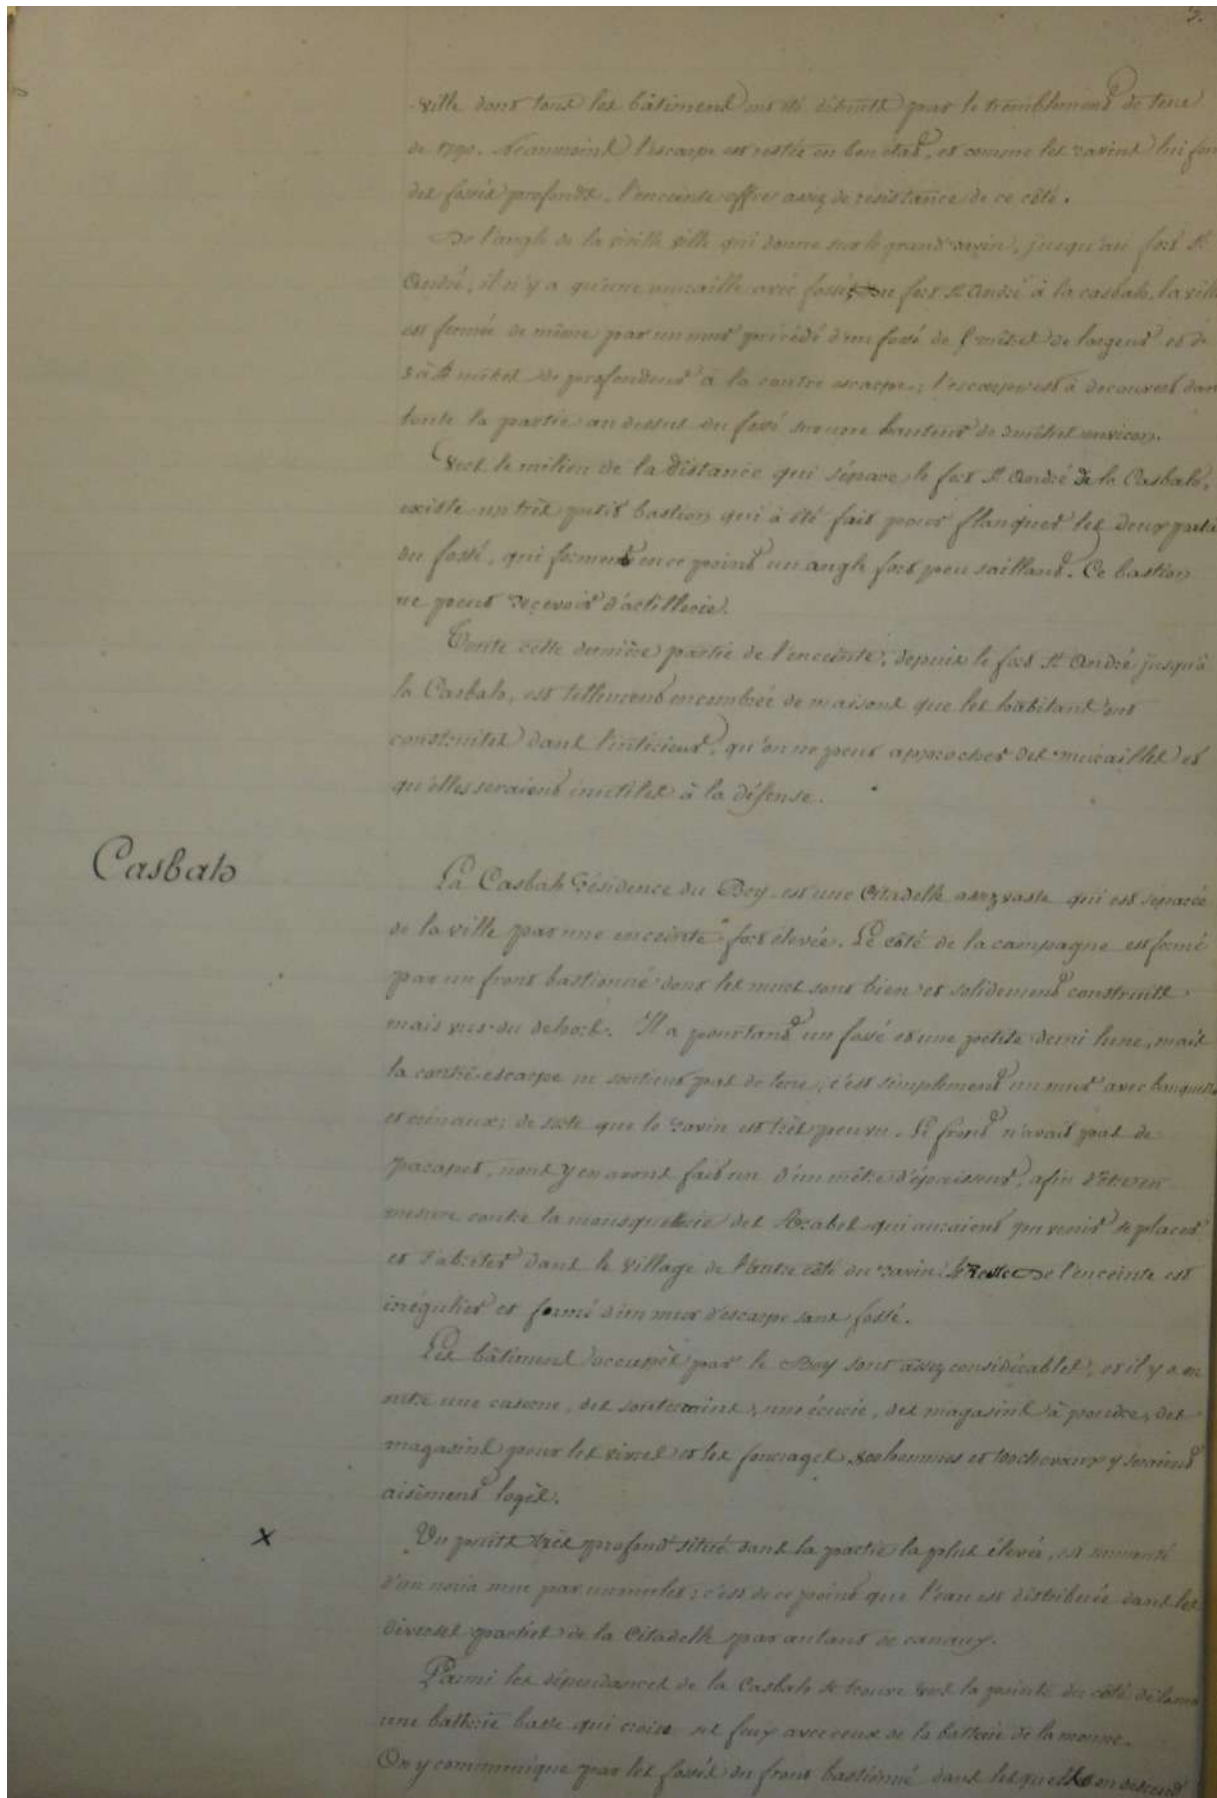 ville dont tous les bâtimens ont été détruits par le tremblement de terre
de 1790. Néanmoins l'escarpe est restée en bon état, et comme les ravins lui font
des fossés profonds, l'enceinte offre assez de résistance de ce côté.
De l'angle de la vieille ville qui donne sur le grand ravin, jusqu'au fort St
André, il n'y a qu'une muraille avec fossé; du fort St André à la casbah, la ville
est fermée de même par un mur précédé d'un fossé de mètres de largeur et de
3 à 4 mètres de profondeur à la contre escarpe; l'escarpe est à découvert dans
toute la partie au dessus du fossé sur une hauteur de mètres environ.
Vers le milieu de la distance qui sépare le fort St André de la Casbah,
existe un très petit bastion qui à été fait pour flanquer les deux parties
du fossé, qui forment en ce point un angle fort peu saillant. Ce bastion
ne peut recevoir d'artillerie.
Toute cette dernière partie de l'enceinte, depuis le fort St André jusqu'à
la Casbah, est tellement encombrée de maisons que les habitans ont
construites dans l'intérieur, qu'on ne peut approcher des murailles et
qu'elles seraient inutiles à la défense.
Casbah
La Casbah résidence du Bey est une Citadelle assez vaste qui est séparée
de la ville par une enceinte fort élevée. Le côté de la campagne est fermé
par un front bastionné dont les murs sont bien et solidement construits
mais vus du dehors. Il a pourtant un fossé et une petite demi lune, mais
la contre-escarpe ne soutient pas de terre, c'est simplement un mur avec banquette
et crénaux; de sorte que le ravin est très peu vu. Le front n'avait pas de
parapet, nous y en avons fait un d'un mètre d'épaisseur, afin d'être en
mesure contre la mousqueterie des Arabes qui auraient pu venir se placer
et s'abriter dans le village de l'autre côté du ravin: le Reste de l'enceinte est
irrégulier et formé d'un mur d'escarpe sans fossé.
Les bâtimens occupés par le Bey sont assez considérables, et il y a en
outre une caserne, des souterrains, une écurie, des magasins à poudre, des
magasins pour les vivres et les fourrages hommes et chevaux y seraient
aisément logés.
x
Un puits très profond situé dans la partie la plus élevée, est surmonté
d'un noria mue par un mulet; c'est de ce point que l'eau est distribuée dans les
diverses parties de la Citadelle par autant de canaux.
Parmi les dépendances de la Casbah se trouve vers la pointe du côté de la mer
une batterie basse qui croise ses feux avec ceux de la batterie de la moune.
On y communique par les fossés du front bastionné dans lesquels on descend